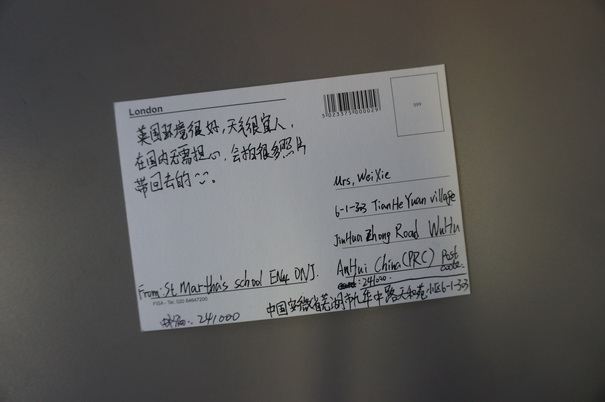 London
英国环境很好,天气很宜人,
在国内无需担心,会拍很多照片
带回去的
5 023375 000029
Mrs, Wei Xie
6-1-303 TianHe Yuan village
JiuHua Zhong Road WuHu
AnHui China (PRC) Post
code:
241000
From: St. Martha's school EN4 0NJ.
FISA - Tel: 020 84647200
中国安徽省芜湖市九华中路天和苑小区6-1-303
邮编: 241000